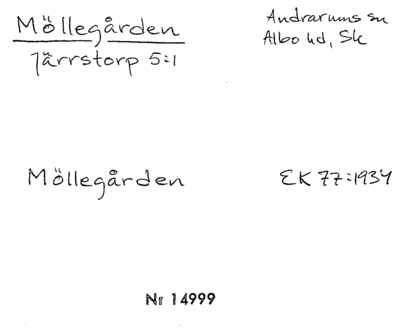 Möllegården
Järrstorp 5:1
Andrarums sn
Albo hd, Sk
Möllegården
EK 77:1934
Nr 14999